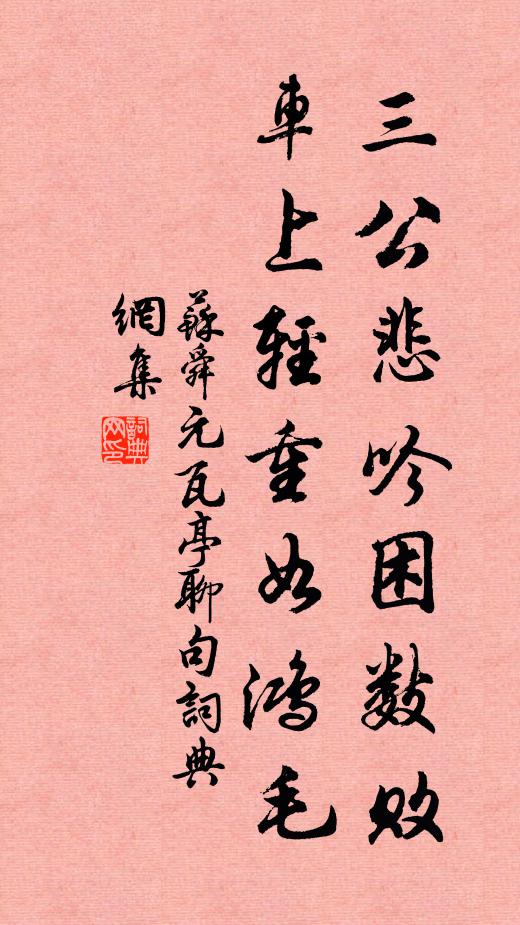 三公悲吟困數敗
車上輕重如鴻毛
蘇舜元瓦亭聊句詞典
網集
詞典網印